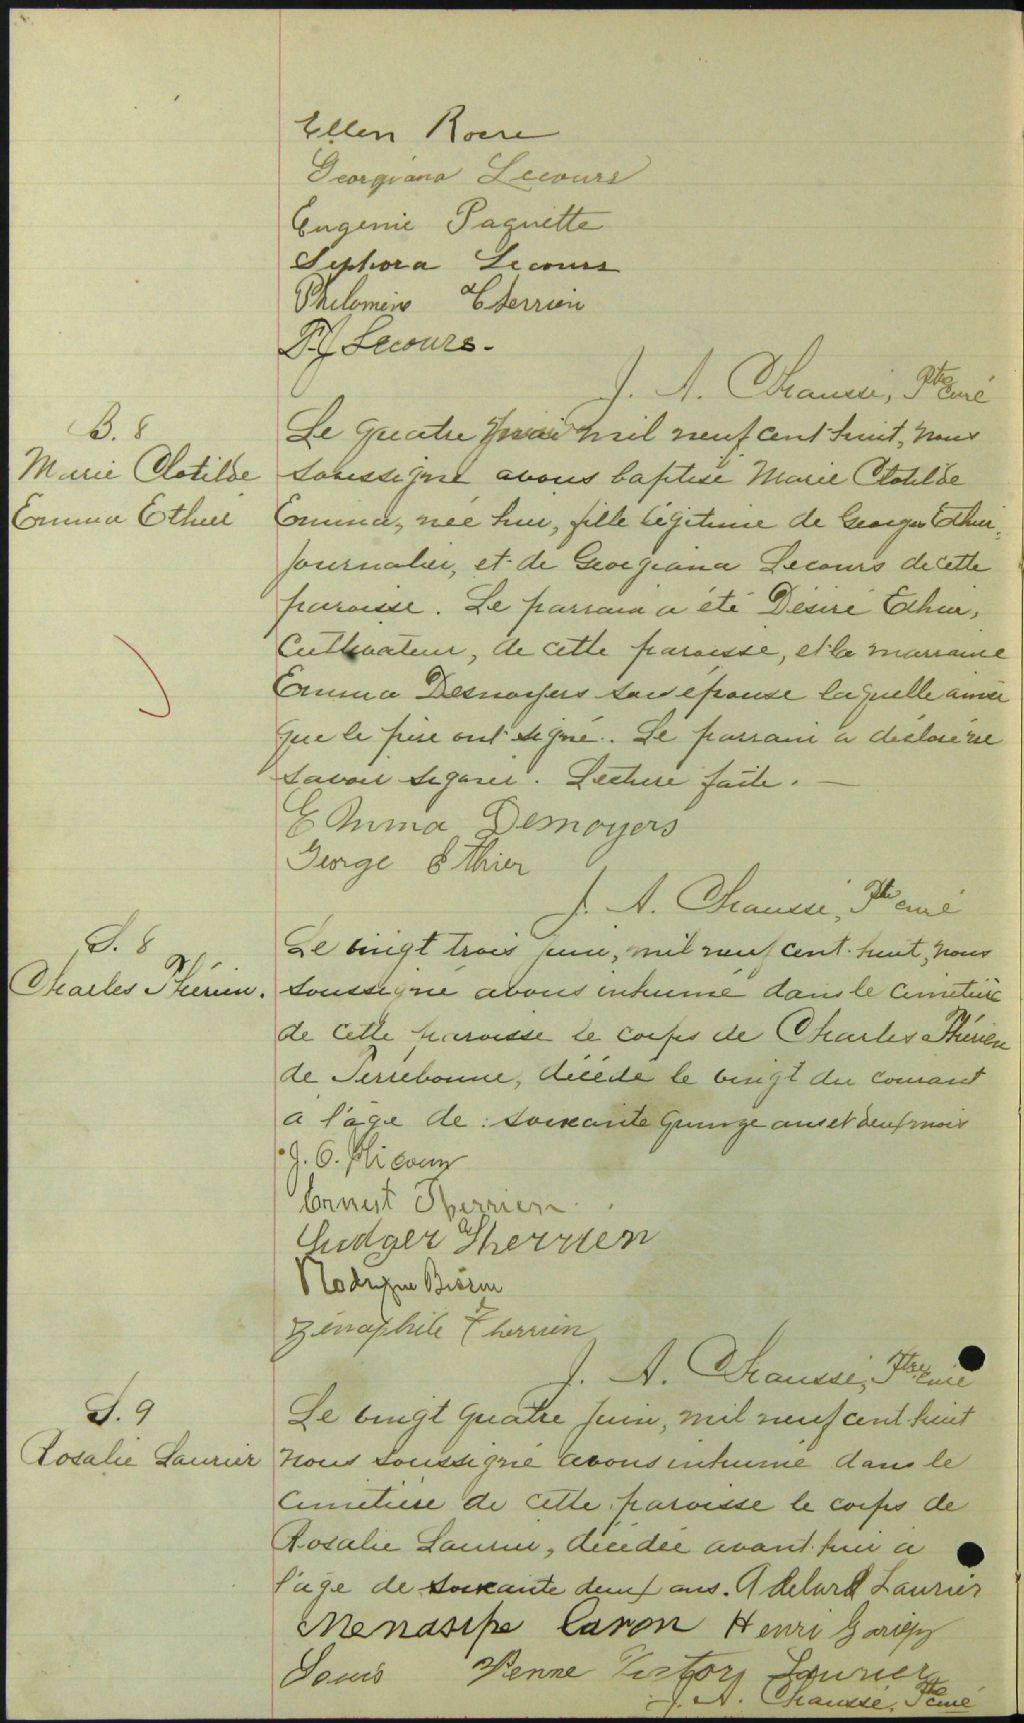 Ellen
Georgiana Lecours
Eugenie Paquette
Sephora Lecours
Philomène Therrien
Lecours.
J. A. Chaussé, Ptre curé
B. 8
Marie Clotilde
Emma Ethier
Le quatre mil neuf cent huit, nous
soussigné avons baptisé Marie Clotilde
Emma, née hier, fille légitime de Georges Ethier,
journalier, et de Georgiana Lecours de cette
paroisse. Le parrain a été Désiré Ethier,
cultivateur, de cette paroisse, et la marraine
Emma Desmoyers son épouse laquelle ainsi
que le père ont signé. Le parrain a déclaré ne
savoir signer. Lecture faite. —
Emma Demoyers
George Ethier
J. A. Chaussé, Ptre curé
S. 8
Charles Thérien.
Le vingt trois juin, mil neuf cent huit, nous
soussigné avons inhumé dans le cimetière
de cette paroisse le corps de Charles Thérien
de Terrebonne, décédé le vingt du courant
à l'âge de soixante quinze ans et deux mois
J. O.
Ernest Therrien
Ludger Therrien
Rodrigue
Zénophile Therrien
J. A. Chaussé, Ptre curé
S. 9
Rosalie Laurier
Le vingt quatre juin, mil neuf cent huit
nous soussigné avons inhumé dans le
cimetière de cette paroisse le corps de
Rosalie Laurier, décédée avant hier à
l'âge de soixante deux ans. Adelard Laurier
Menasipe Caron Henri Gariepy
Louis Venne Victory Laurier
J. A. Chaussé, Ptre curé